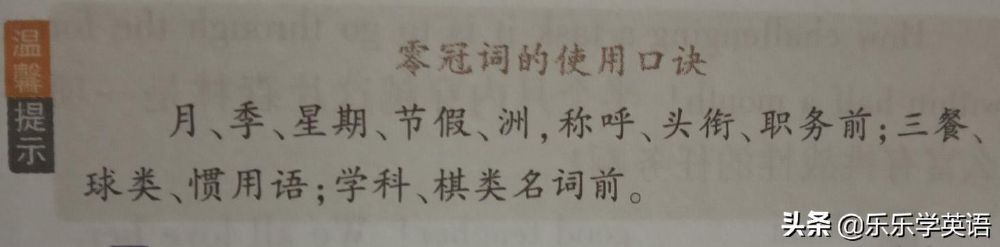 温馨提示
零冠词的使用口诀
月、季、星期、节假、洲,称呼、头衔、职务前;三餐、
球类、惯用语;学科、棋类名词前。
头条 @乐乐学英语